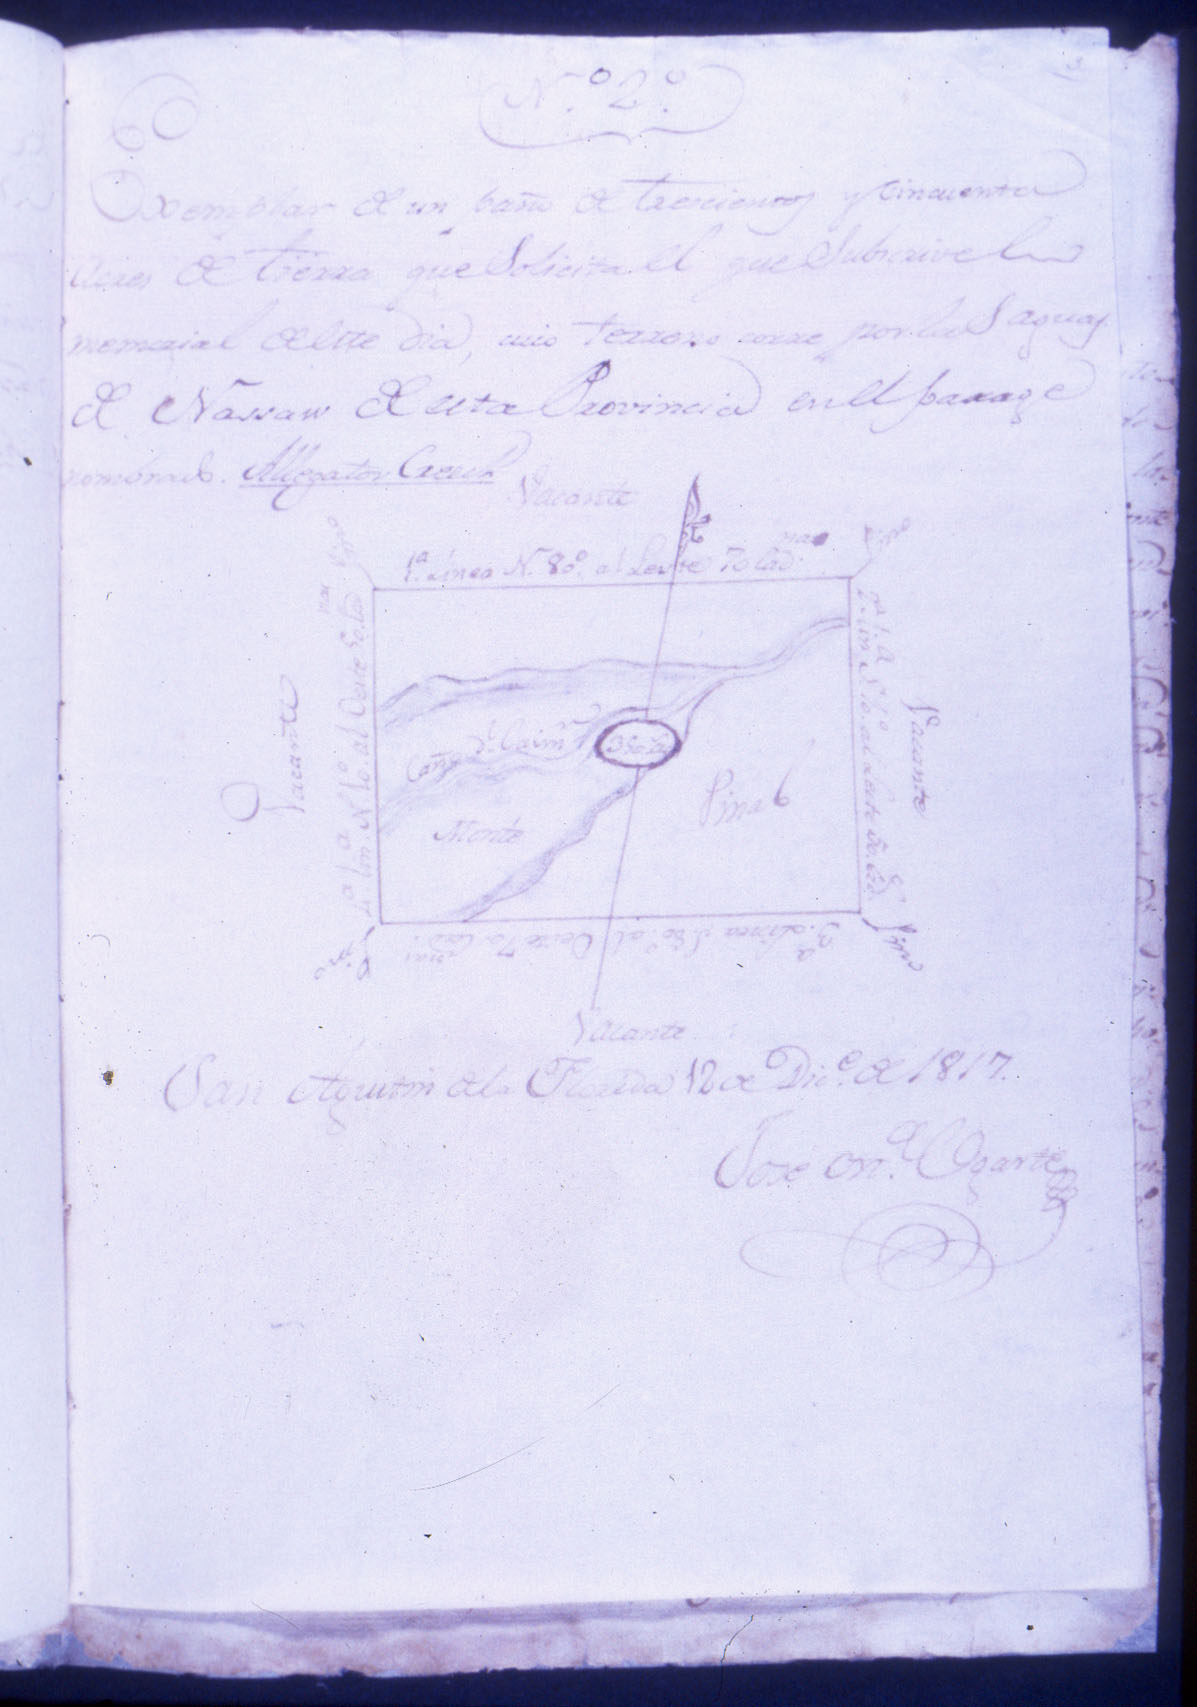 N.º 2.º
Exemplar de un paño de trescientos y cincuenta
Acres de tierra que Solicita el que Subscrive
memorial de este dia, cuio terreno corre por las aguas
de Nassaw de esta Provincia en el paraxe
nombrado. Allegator Creek
Vacante
1.ª Linea N. 80º al Leste 70 cad.nas
Pino
Pino
2.ª Lin.ª S. 10.º al Leste 50. Cad.
Vacante
Vacante
4.ª Lin.ª N. 10.º al Oeste 50. Cad.nas
Caño de Caim.n
350 a.
Monte
Pinal
3.ª Linea S. 80.º al Oeste 70 Cad.nas
Pino
Pino
Vacante
San Agustin de la Florida 12 de Dic.e de 1817.
Jose M. de Ugarte